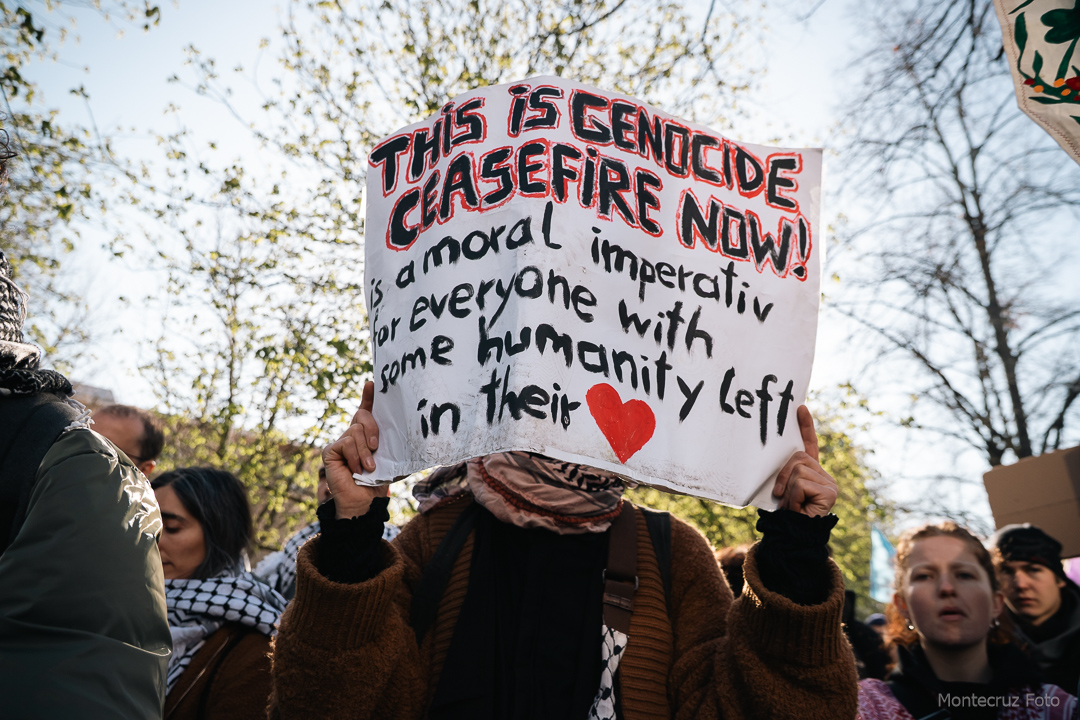 THIS iS GENOCIDE
CEASEFiRE NOW!
is a moral imperativ
for everyone with
some humanity left
in their
Montecruz Foto